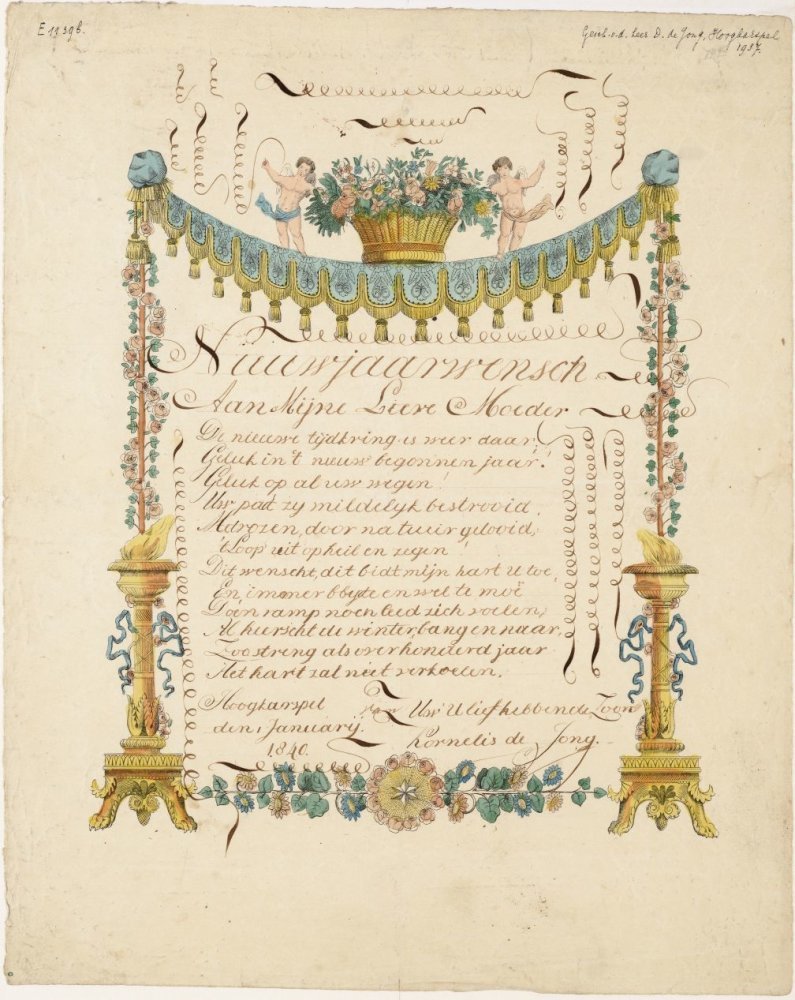 E 1139b.
Gesch. v. d. Heer D. de Jong, Hoogkarspel
1937.
Nieuwjaarwensch
Aan Mijne Lieve Moeder
De nieuwe tijdkring is weer daar,
Geluk in 't nieuw begonnen jaar!
Geluk op al uw wegen!
Uw pad zy mildelyk bestrooid,
Met rozen, door natuur getooid,
't Loop' uit op heil en zegen!
Dit wenscht, dit bidt mijn hart U toe,
En immer en wel te moe
Doen ramp noch leed zich voelen,
Al heerscht de winter bang en naar,
Zoo streng als over honderd jaar
Het hart zal niet verkoelen.
Hoogkarspel van Uw U liefhebbende Zoon
den 1 Januarij. Kornelis de Jong.
1840.